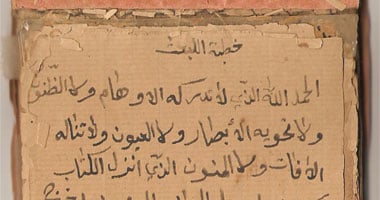 خطبة الليث
الحمد الله الذي لا تدركه الاوهام ولا الظنون
ولا تحويه الأبصار ولا العيون ولا تناله
الآفات ولا المنون الذي انزل الكتاب